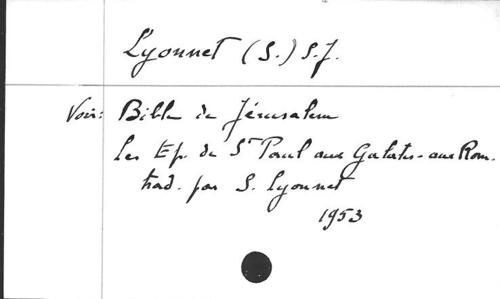 Lyonnet (S.) S.J.
Voir: Bible de Jérusalem
Les Ep. de St Paul aux Galates - aux Rom.
trad. par S. Lyonnet
1953